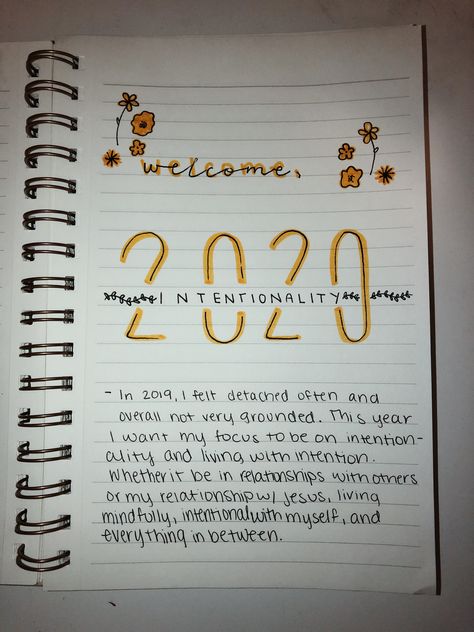 welcome,
2020
INTENTIONALITY
- In 2019, I felt detached often and
overall not very grounded. This year
I want my focus to be on intention-
ality and living with intention.
Whether it be in relationships with others
or my relationship w/ Jesus, living
mindfully, intentional with myself, and
everything in between.